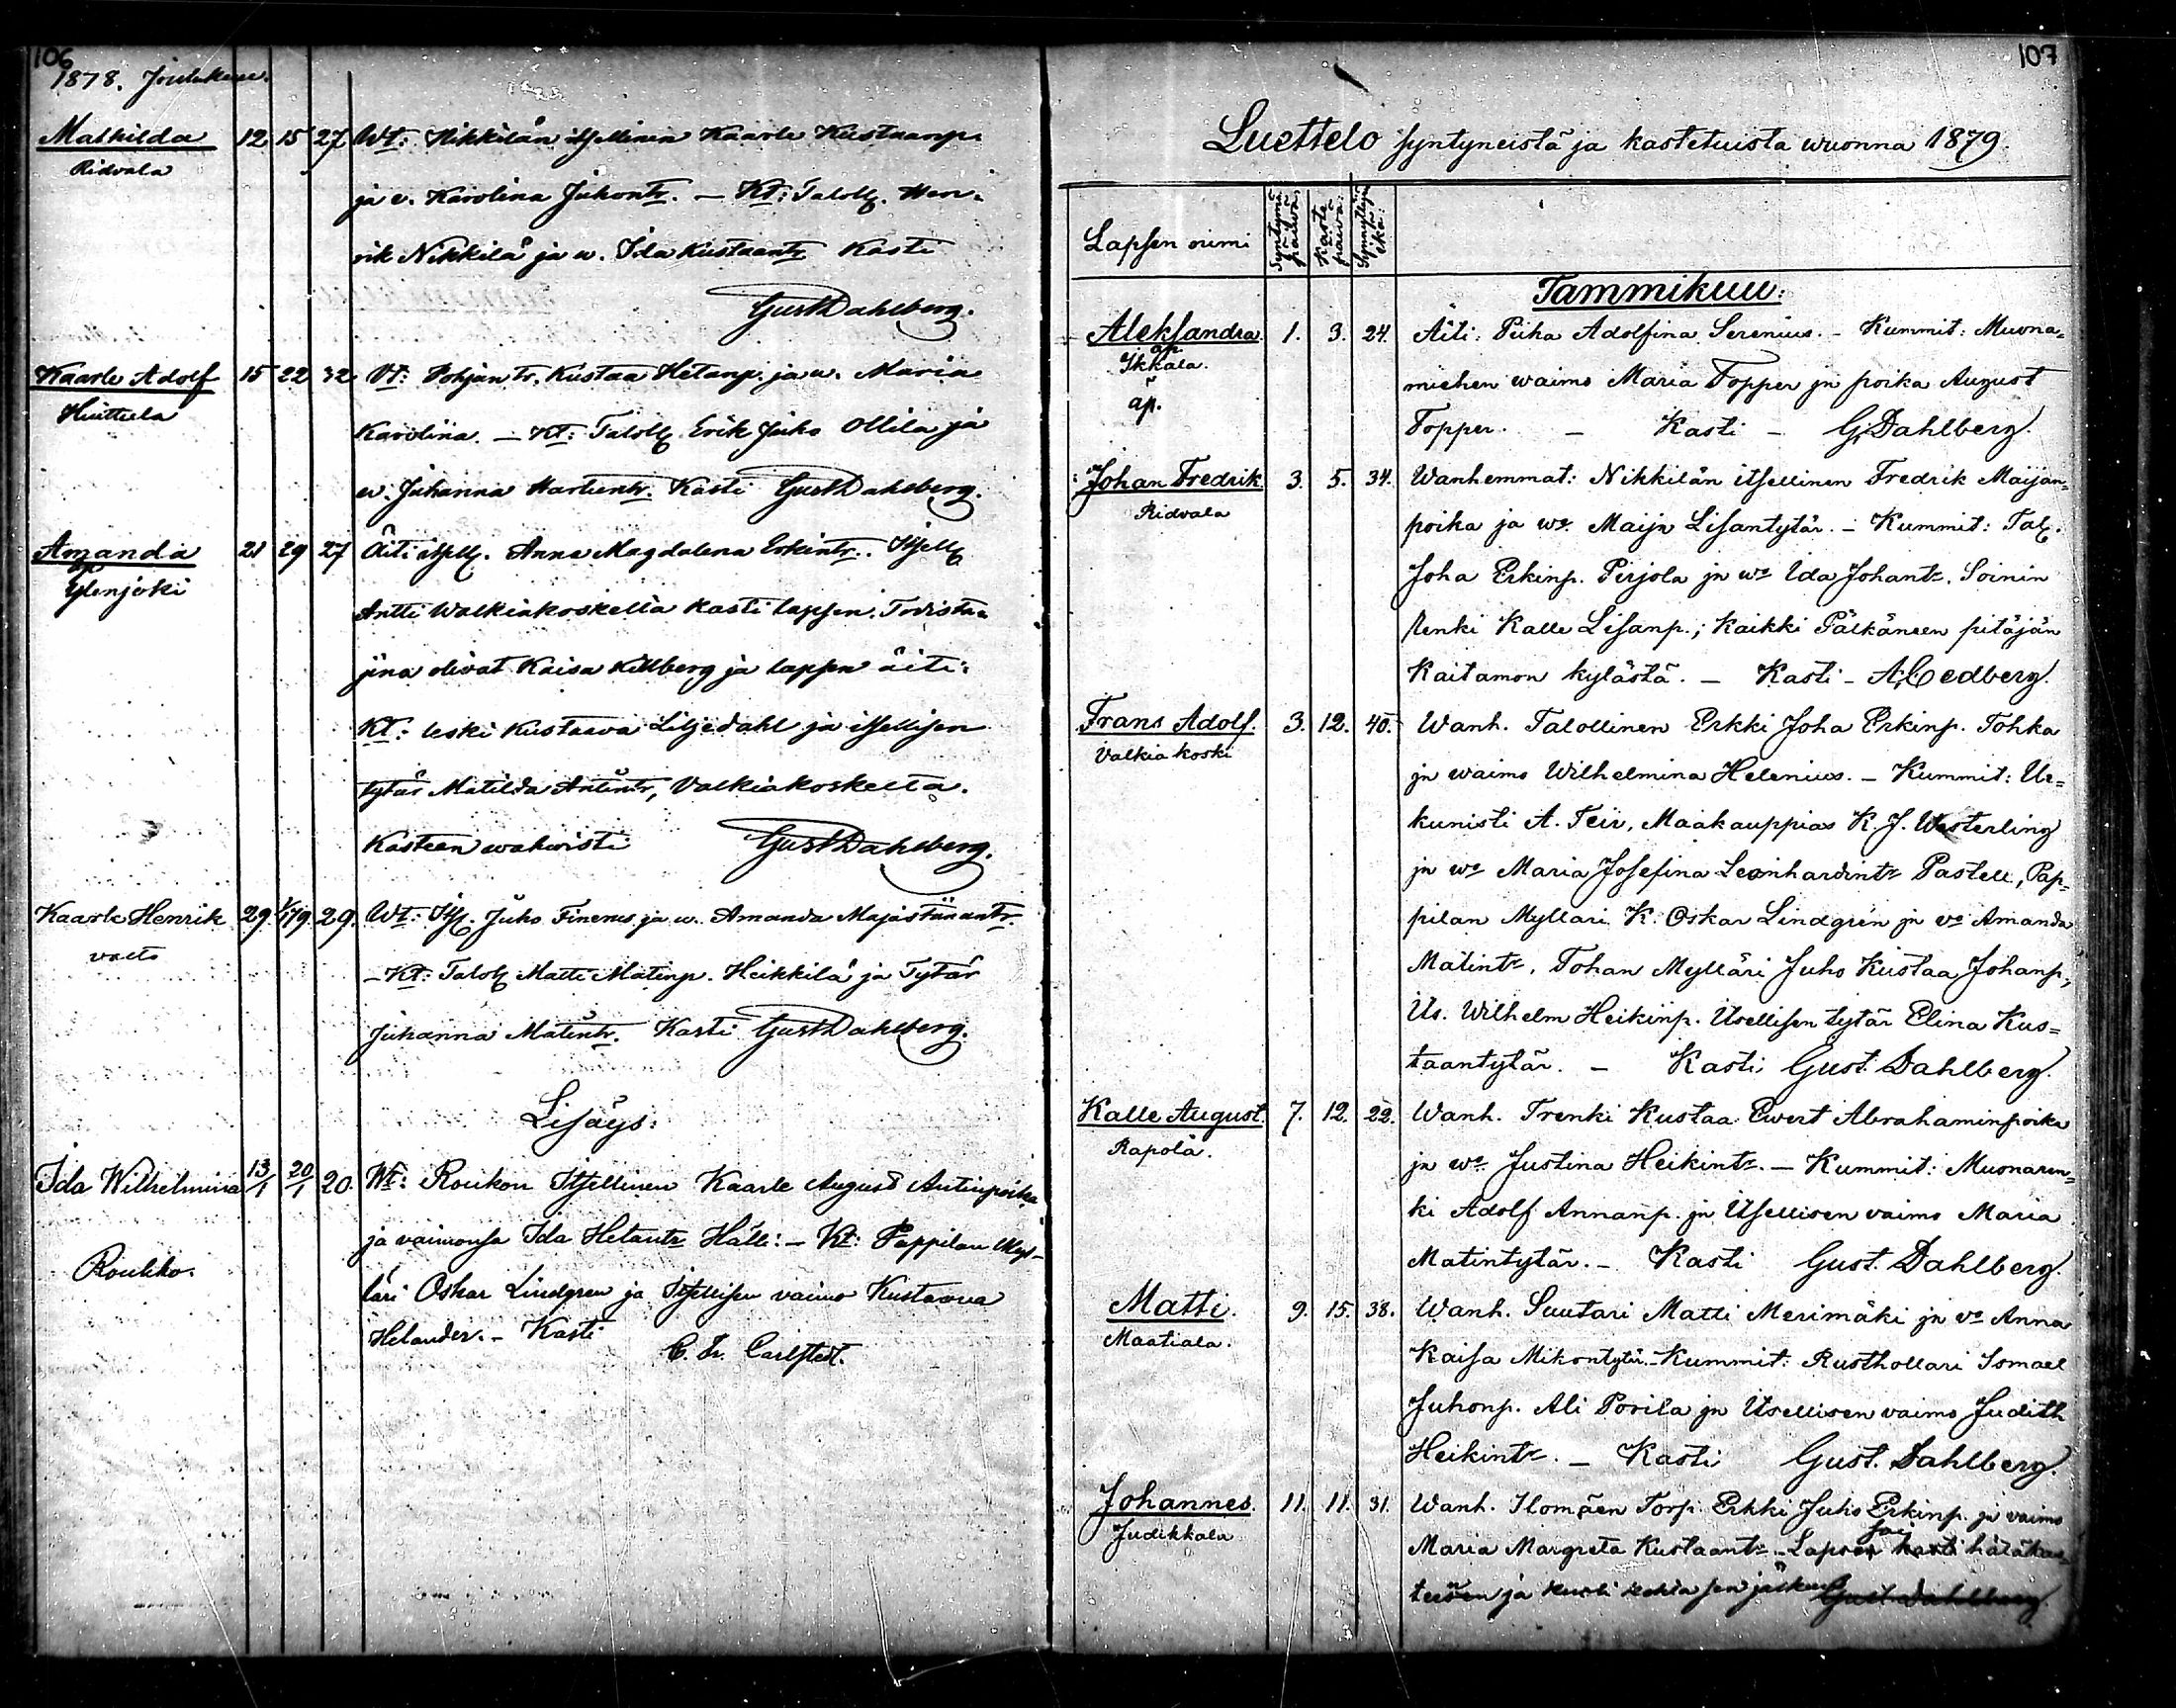 106
1878. Joulukuu.
Mathilda 12 15 27 Wt: Nikkilän itsellinen Kaarle Kustaanp.
Ridvala
ja v. Karolina Juhontr. — Kt: Taloll. Hen-
rik Nikkilä ja w. Ida Kustaantr Kasti
Gust Dahlberg.
Kaarle Adolf 15 22 32 Vt: Pohjan tr. Kustaa Hetanp. ja w. Maria
Huittula
Karolina. — Kt: Taloll Erik Juho Ollila ja
w. Juhanna Kasti Gust Dahlberg.
Amanda 21 29 27 Äiti itsell. Anna Magdalena Erkintr. Itsell
äp
Ylenjoki
Antti Walkiakoskella kasti lapsen. Todista-
jina olivat Kaisa Killberg ja lapsen äiti.
Kt: leski Kustaava Liljedahl ja itsellisen
tytär Matilda Antintr, Valkiakoskella.
Kasteen wahwisti Gust Dahlberg.
Kaarle Henrik 29. 1/1 79. 29. Wt: Its. Juho Finerus ja w. Amanda
— Kt: Taloll Matti Matinp. Heikkilä ja Tytär
Juhanna Matintr. Kasti Gust Dahlberg.
Lisäys:
Ida Wilhelmina 13/1 20/1 20. Wt: Roukon Itsellinen Kaarle August Antinpoika
ja vaimonsa Ida Hetantr Hälli. — Kt: Pappilan Myl-
Roukko.
läri Oskar Lindgren ja Itsellisen vaimo Kustaava
Helander. — Kasti
C. Fr. Carlstedt.
107
Luettelo syntyneistä ja kastetuista wuonna 1879.
Lapsen nimi Syntymä päivä Kaste päivä Synnyttäjän ikä:
Tammikuu:
Aleksandra. 1. 3. 24. Äiti: Piika Adolfina Serenius. — Kummit: Muona-
äp
Ikkala.
miehen waimo Maria Topper ja poika August
äp.
Topper. — Kasti — G. Dahlberg.
Johan Fredrik 3. 5. 34. Wanhemmat: Nikkilän itsellinen Fredrik Maijan-
Ridvala
poika ja wo Maija Lisantytär. — Kummit: Tal.
Joha Erkinp. Pirjola ja wo Ida Johantr. Soinin
renki Kalle Lisanp.; Kaikki Pälkäneen pitäjän
Kaitamon kylästä. — Kasti — A. Cedberg.
Frans Adolf. 3. 12. 40. Wanh. Talollinen Erkki Joha Erkinp. Tohka
Valkiakoski
ja waimo Wilhelmina Helenius. — Kummit: Ur-
kunisti A. Teir, Maakauppias K. J. Westerling
ja wo Maria Josefina Leonhardintr Pastell, Pap-
pilan Myllari K. Oskar Lindgrén ja vo Amanda
Matintr. Tohan Mylläri Juho Kustaa Johanp.,
Its. Wilhelm Heikinp. Itsellisen tytär Elina Kus-
taantytär. — Kasti Gust. Dahlberg.
Kalle August. 7. 12. 22. Wanh. Trenki Kustaa Ewert Abrahaminpoika
Rapola.
ja wo Justina Heikintr. — Kummit: Muonaren-
ki Adolf Annanp. ja Itsellisen vaimo Maria
Matintytär. — Kasti Gust. Dahlberg.
Matti. 9. 15. 38. Wanh. Suutari Matti Merimäki ja vo Anna
Maatiala.
Kaisa Mikontytär. — Kummit: Rusthollari Ismael
Juhonp. Ali Porila ja Itsellisen vaimo Judith
Heikintr. — Kasti Gust. Dahlberg.
Johannes. 11. 11. 31. Wanh. Ilomäen Torp. Erkki Juho Erkinp. ja vaimo
Judikkala
Maria Margreta Kustaantr. — Lapsen sai kasti hätäkas-
teen ja kuoli kohta sen jälkeen Gust Dahlberg.